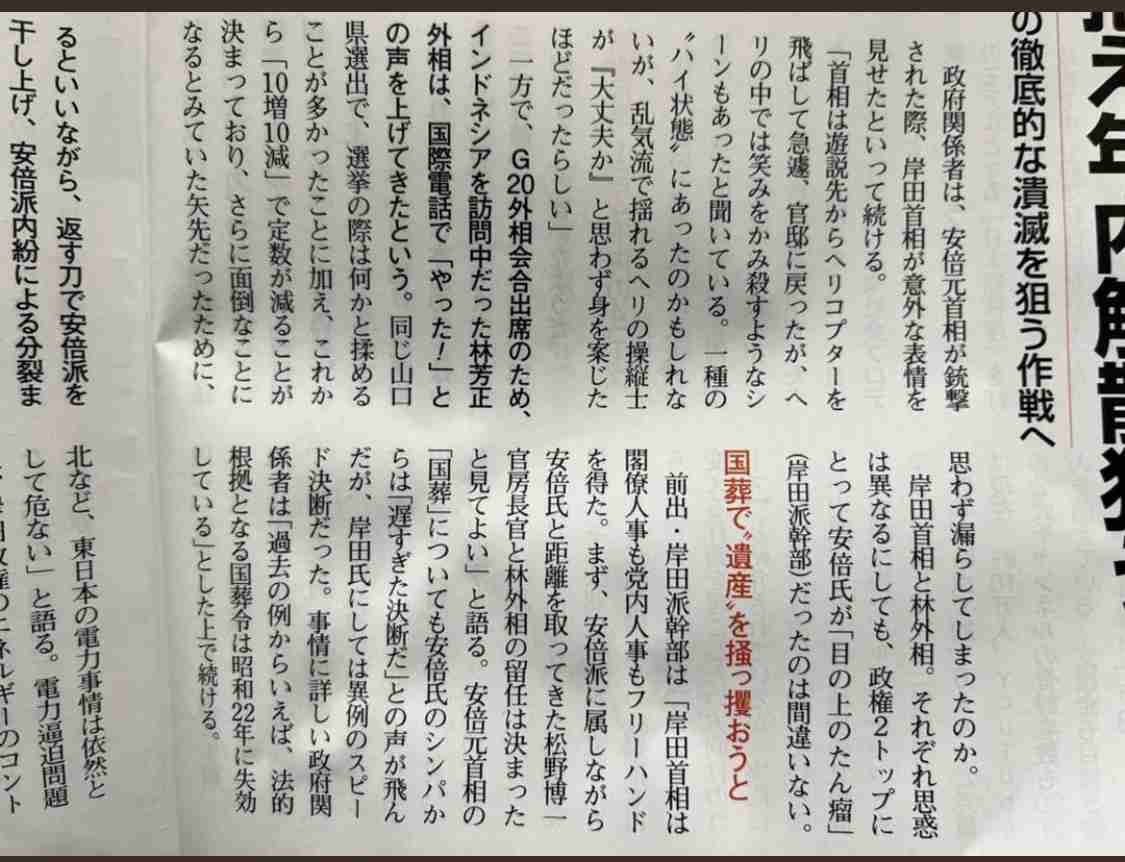 の徹底的な潰滅を狙う作戦へ
政府関係者は、安倍元首相が銃撃
された際、岸田首相が意外な表情を
見せたといって続ける。
「首相は遊説先からヘリコプターを
飛ばして急遽、官邸に戻ったが、ヘ
リの中では笑みをかみ殺すようなシ
ーンもあったと聞いている。一種の
〝ハイ状態〟にあったのかもしれな
いが、乱気流で揺れるヘリの操縦士
が『大丈夫か』と思わず身を案じた
ほどだったらしい」
一方で、G20外相会合出席のため、
インドネシアを訪問中だった林芳正
外相は、国際電話で「やった!」と
の声を上げてきたという。同じ山口
県選出で、選挙の際は何かと揉める
ことが多かったことに加え、これか
ら「10増10減」で定数が減ることが
決まっており、さらに面倒なことに
なるとみていた矢先だったために、
思わず漏らしてしまったのか。
岸田首相と林外相。それぞれ思惑
は異なるにしても、政権2トップに
とって安倍氏が「目の上のたん瘤」
(岸田派幹部)だったのは間違いない。
国葬で〝遺産〟を掻っ攫おうと
前出・岸田派幹部は「岸田首相は
閣僚人事も党内人事もフリーハンド
を得た。まず、安倍派に属しながら
安倍氏と距離を取ってきた松野博一
官房長官と林外相の留任は決まった
と見てよい」と語る。安倍元首相の
「国葬」についても安倍氏のシンパか
らは「遅すぎた決断だ」との声が飛ん
だが、岸田氏にしては異例のスピー
ド決断だった。事情に詳しい政府関
係者は「過去の例からいえば、法的
根拠となる国葬令は昭和22年に失効
している」とした上で続ける。
るといいながら、返す刀で安倍派を
干し上げ、安倍派内紛による分裂ま
北など、東日本の電力事情は依然と
して危ない」と語る。電力逼迫問題